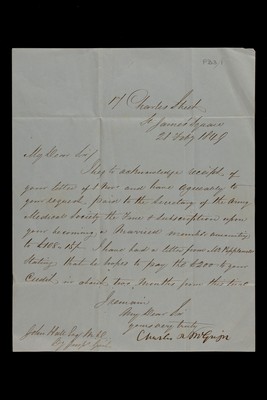 17 Charles Street
St James's Square
28 Feby 1849
My dear Sir
I beg to acknowledge receipt of
your letter of and have agreeably to
your request, paid to the Secretary of the Army
Medical Society the fine & subscription upon
your becoming a Married member amounting
to I have had a letter from Mr
stating that he hopes to pay the £200 to your
Credit in about two months from this time
I remain
My dear Sir
yours very truly
Charles R McGrigor
John Hall Esq M.D.